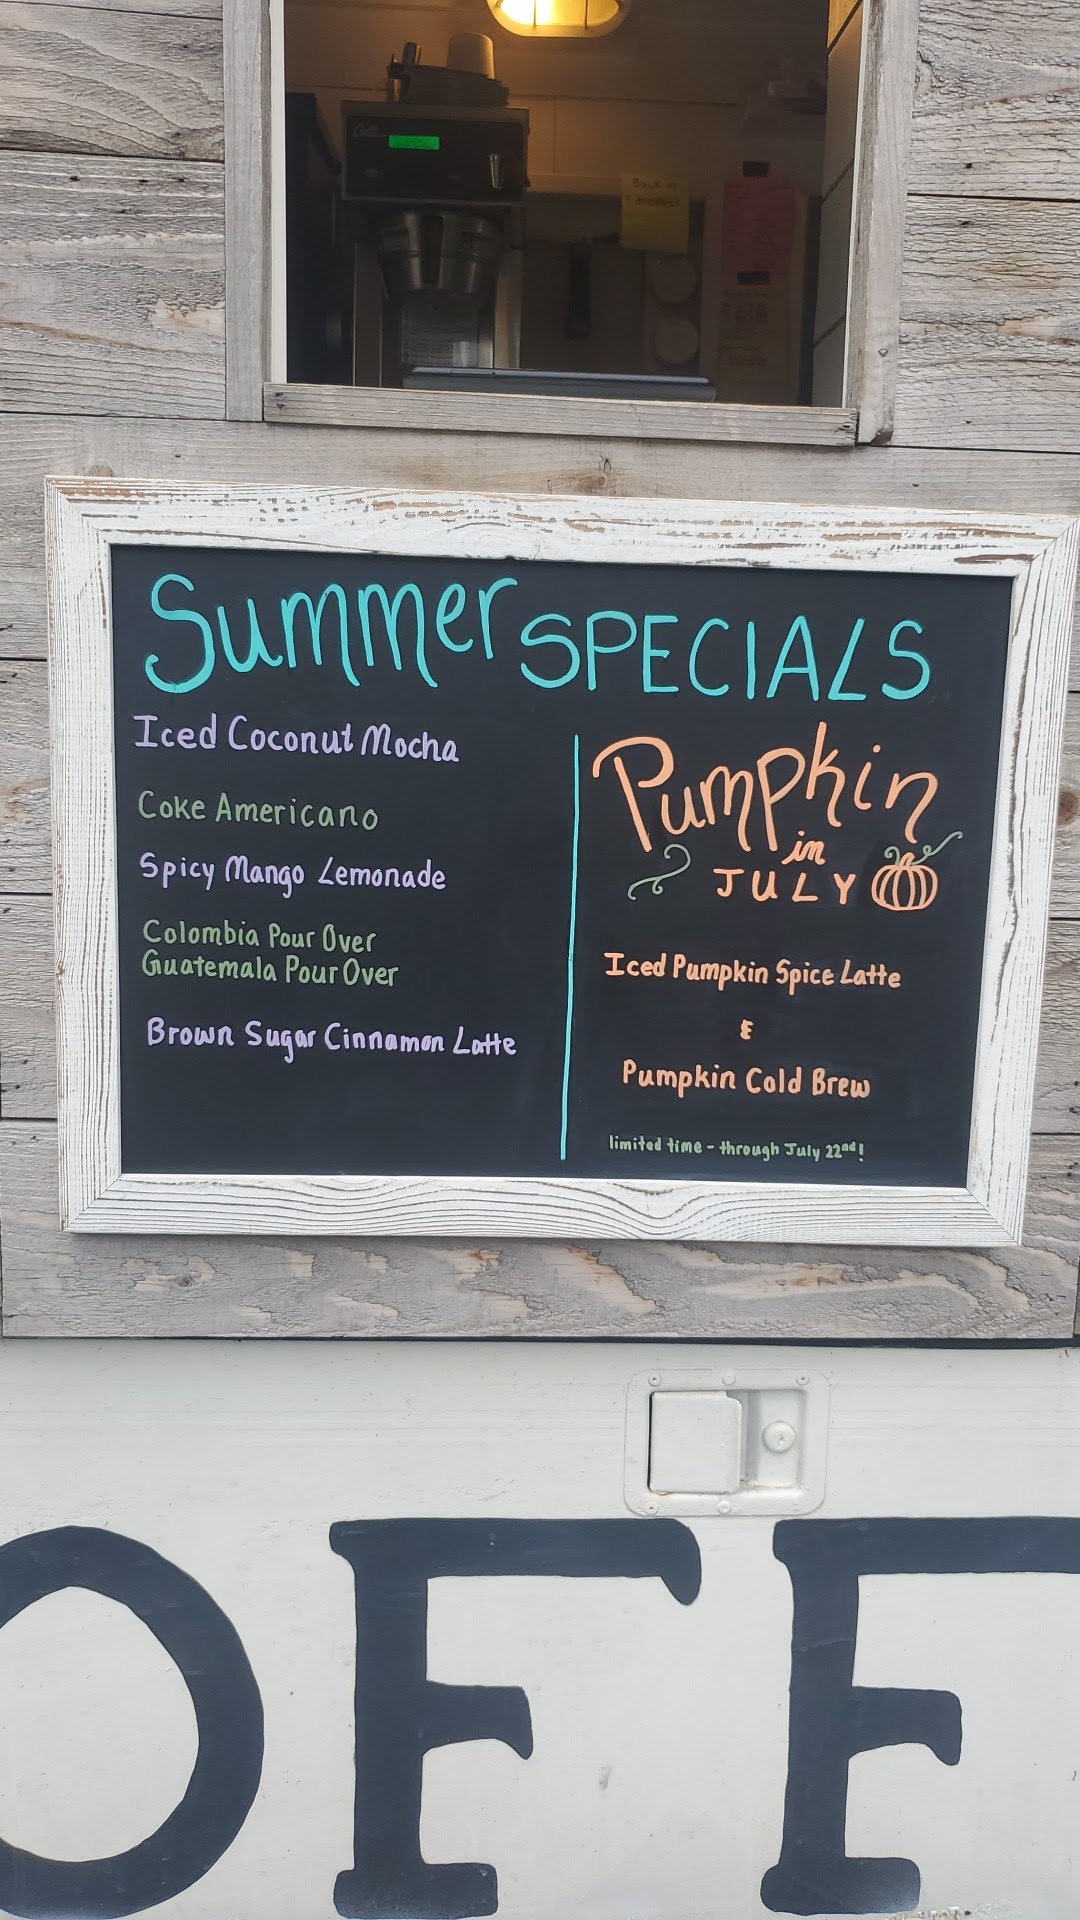 Back in
5 minutes!
Summer SPECIALS
Iced Coconut Mocha
Coke Americano
Spicy Mango Lemonade
Colombia Pour Over
Guatemala Pour Over
Brown Sugar Cinnamon Latte
Pumpkin
in
JULY
Iced Pumpkin Spice Latte
&
Pumpkin Cold Brew
limited time - through July 22nd!
OFF